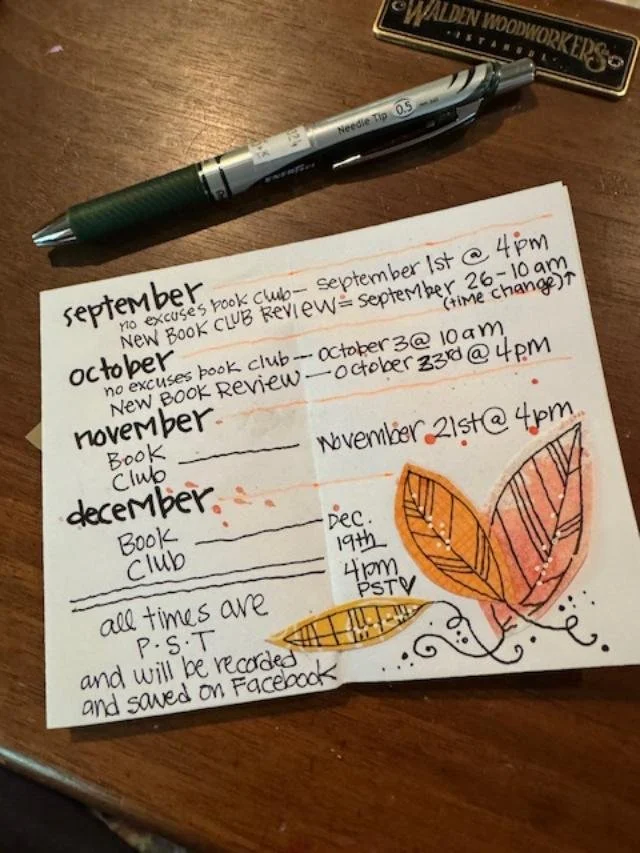 WALDEN WOODWORKERS
• ISTANBUL •
Needle Tip 0.5
ENERGEL
september
no excuses book club — september 1st @ 4pm
NEW BOOK CLUB REVIEW = september 26 - 10 am
(time change)↑
october
no excuses book club — october 3 @ 10 am
NEW BOOK REVIEW — october 23rd @ 4pm
november
BOOK
Club
November 21st @ 4pm
december
BOOK
Club
Dec.
19th
4pm
PST♡
all times are
P.S.T
and will be recorded
and saved on Facebook